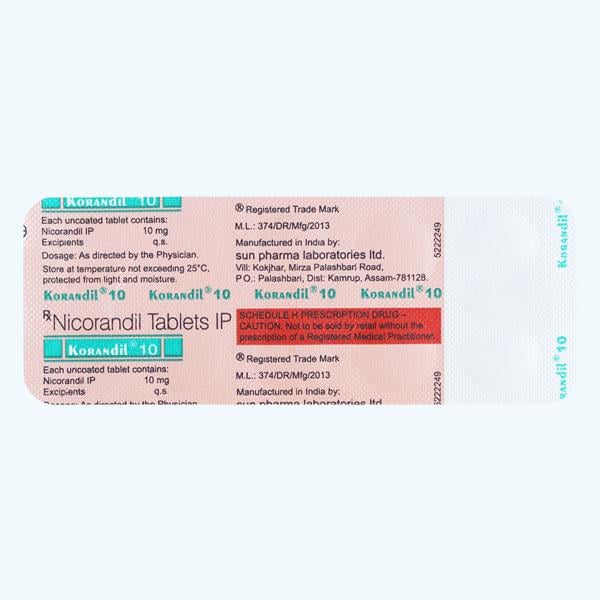 KORANDIL® 10
Each uncoated tablet contains:
Nicorandil IP 10 mg
Excipients q.s.
Dosage: As directed by the Physician.
Store at temperature not exceeding 25°C,
protected from light and moisture.
® Registered Trade Mark
M.L.: 374/DR/Mfg/2013
Manufactured in India by:
sun pharma laboratories ltd.
Vill: Kokjhar, Mirza Palashbari Road,
P O.: Palashbari, Dist: Kamrup, Assam-781128.
5222249
KORANDIL®10 KORANDIL®10 KORANDIL®10 KORANDIL®10
Rx Nicorandil Tablets IP
SCHEDULE H PRESCRIPTION DRUG –
CAUTION: Not to be sold by retail without the
prescription of a Registered Medical Practitioner.
KORANDIL® 10
Each uncoated tablet contains:
Nicorandil IP 10 mg
Excipients q.s.
Dosage: As directed by the Physician.
® Registered Trade Mark
M.L.: 374/DR/Mfg/2013
Manufactured in India by:
sun pharma laboratories ltd.
5222249
KORANDIL®
KORANDIL® 10